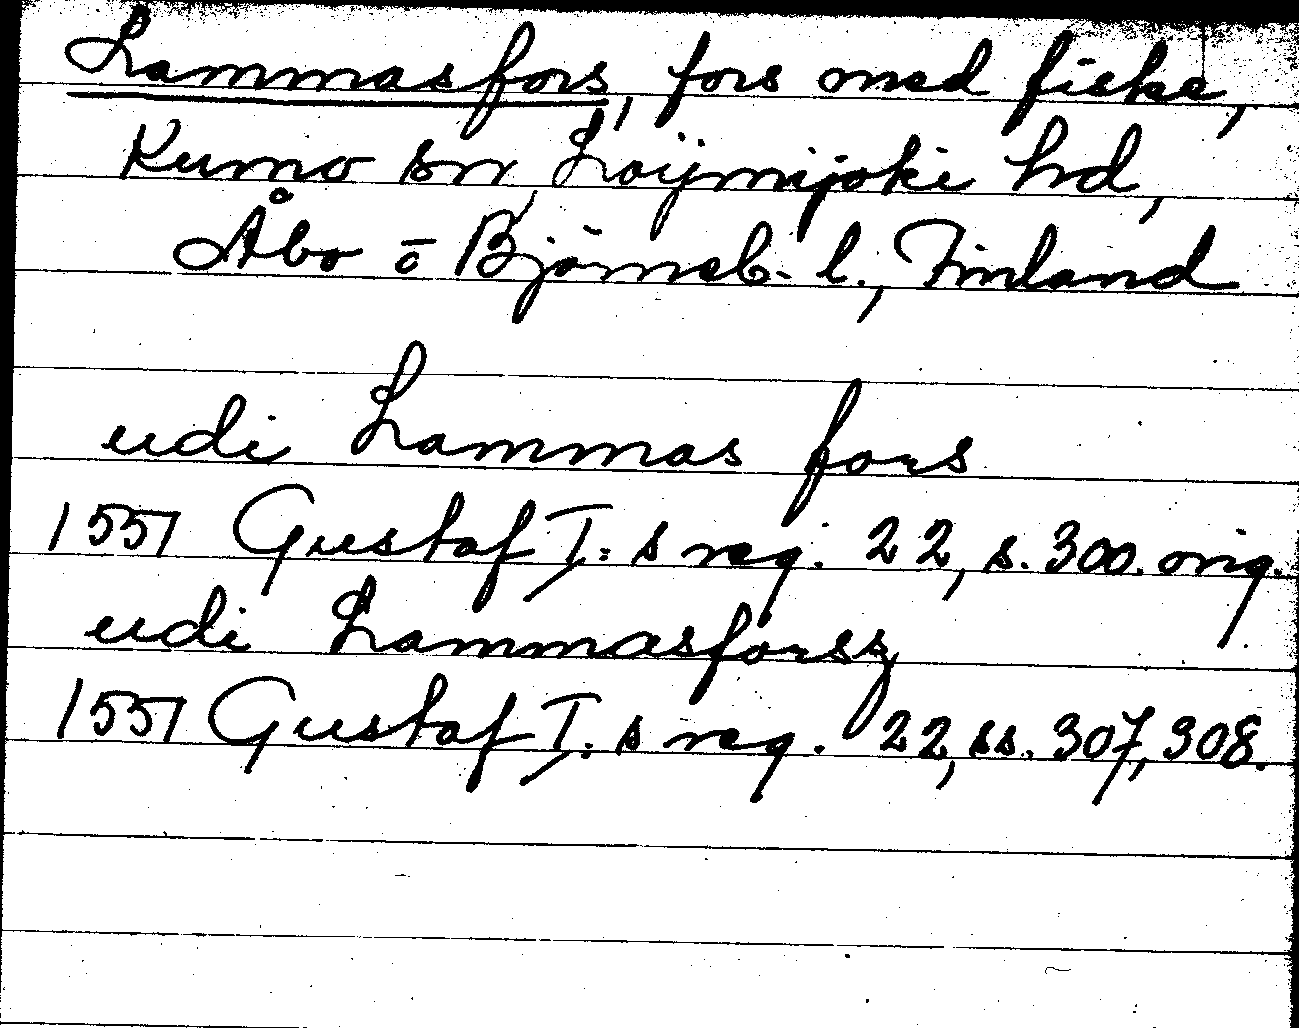 Lammasfors, fors med fiske,
Kumo sn, Loijmijoki hd,
Åbo o Björneb. l., Finland
udi Lammas fors
1557 Gustaf I:s reg. 22, s. 300. orig.
udi Lammasforssz
1557 Gustaf I:s reg. 22, ss. 307, 308.